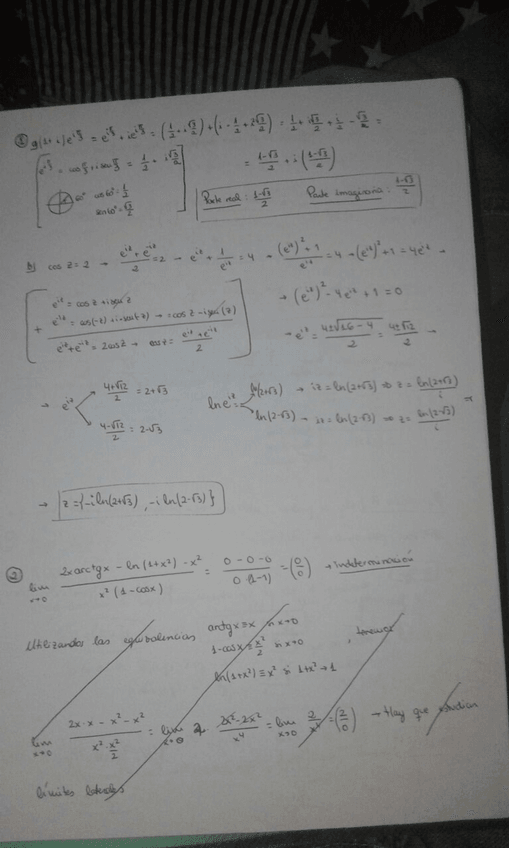 ① a) (1+i)e^{iπ/3} = e^{iπ/3} + ie^{iπ/3} = (1/2 + i√3/2) + (i·1/2 + i²√3/2) = 1/2 + i√3/2 + i/2 - √3/2 =
[ e^{iπ/3} = cos π/3 + i sen π/3 = 1/2 + i√3/2
60° cos 60° = 1/2
sen 60° = √3/2 ]
= (1-√3)/2 + i (1+√3)/2
Parte real: (1-√3)/2 Parte imaginaria: (1+√3)/2
b) cos z = 2 → (e^{iz} + e^{-iz})/2 = 2 → e^{iz} + 1/e^{iz} = 4 → ((e^{iz})² + 1)/e^{iz} = 4 → (e^{iz})² + 1 = 4e^{iz} →
[ e^{iz} = cos z + i sen z
+ e^{-iz} = cos(-z) + i sen(-z) → = cos z - i sen(z)
e^{iz} + e^{-iz} = 2cos z → cos z = (e^{iz} + e^{-iz})/2 ]
→ (e^{iz})² - 4e^{iz} + 1 = 0
→ e^{iz} = (4 ± √(16 - 4))/2 = (4 ± √12)/2 →
→ e^{iz} (4+√12)/2 = 2+√3
(4-√12)/2 = 2-√3
ln e^{iz} = ln(2+√3) → iz = ln(2+√3) ⇒ z = ln(2+√3)/i
ln(2-√3) → iz = ln(2-√3) ⇒ z = ln(2-√3)/i
→ z = {-i ln(2+√3), -i ln(2-√3)}
② lim x→0 (2x arctg x - ln(1+x²) - x²)/(x²(1-cos x)) = (0-0-0)/(0·(1-1)) = (0/0) → indeterminación
Utilizando las equivalencias arctg x ≡ x si x→0
1-cos x ≡ x²/2 si x→0 , tenemos
ln(1+x²) ≡ x² si 1+x²→1
lim x→0 (2x·x - x² - x²)/(x²·x²/2) = lim x→0 2· (2x²-2x²)/x⁴ = lim x→0 2/x⁴ = (2/0) → Hay que estudiar
límites laterales